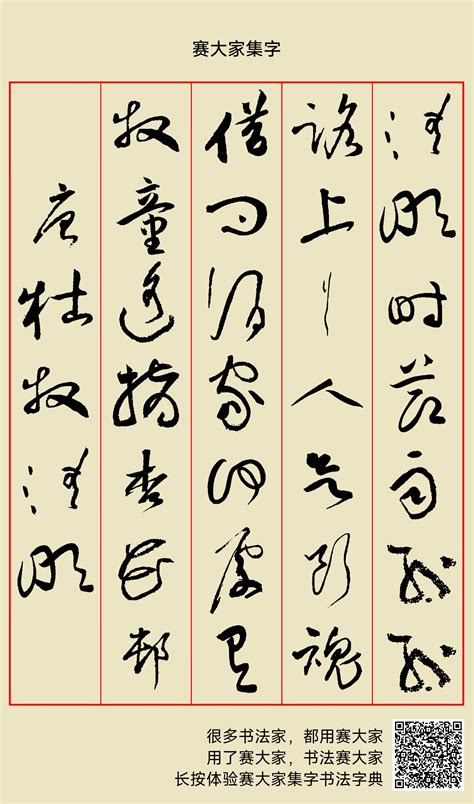 赛大家集字
清明时节雨纷纷
路上行人欲断魂
借问酒家何处有
牧童遥指杏花邨
唐杜牧清明
很多书法家，都用赛大家
用了赛大家，书法赛大家
长按体验赛大家集字书法字典